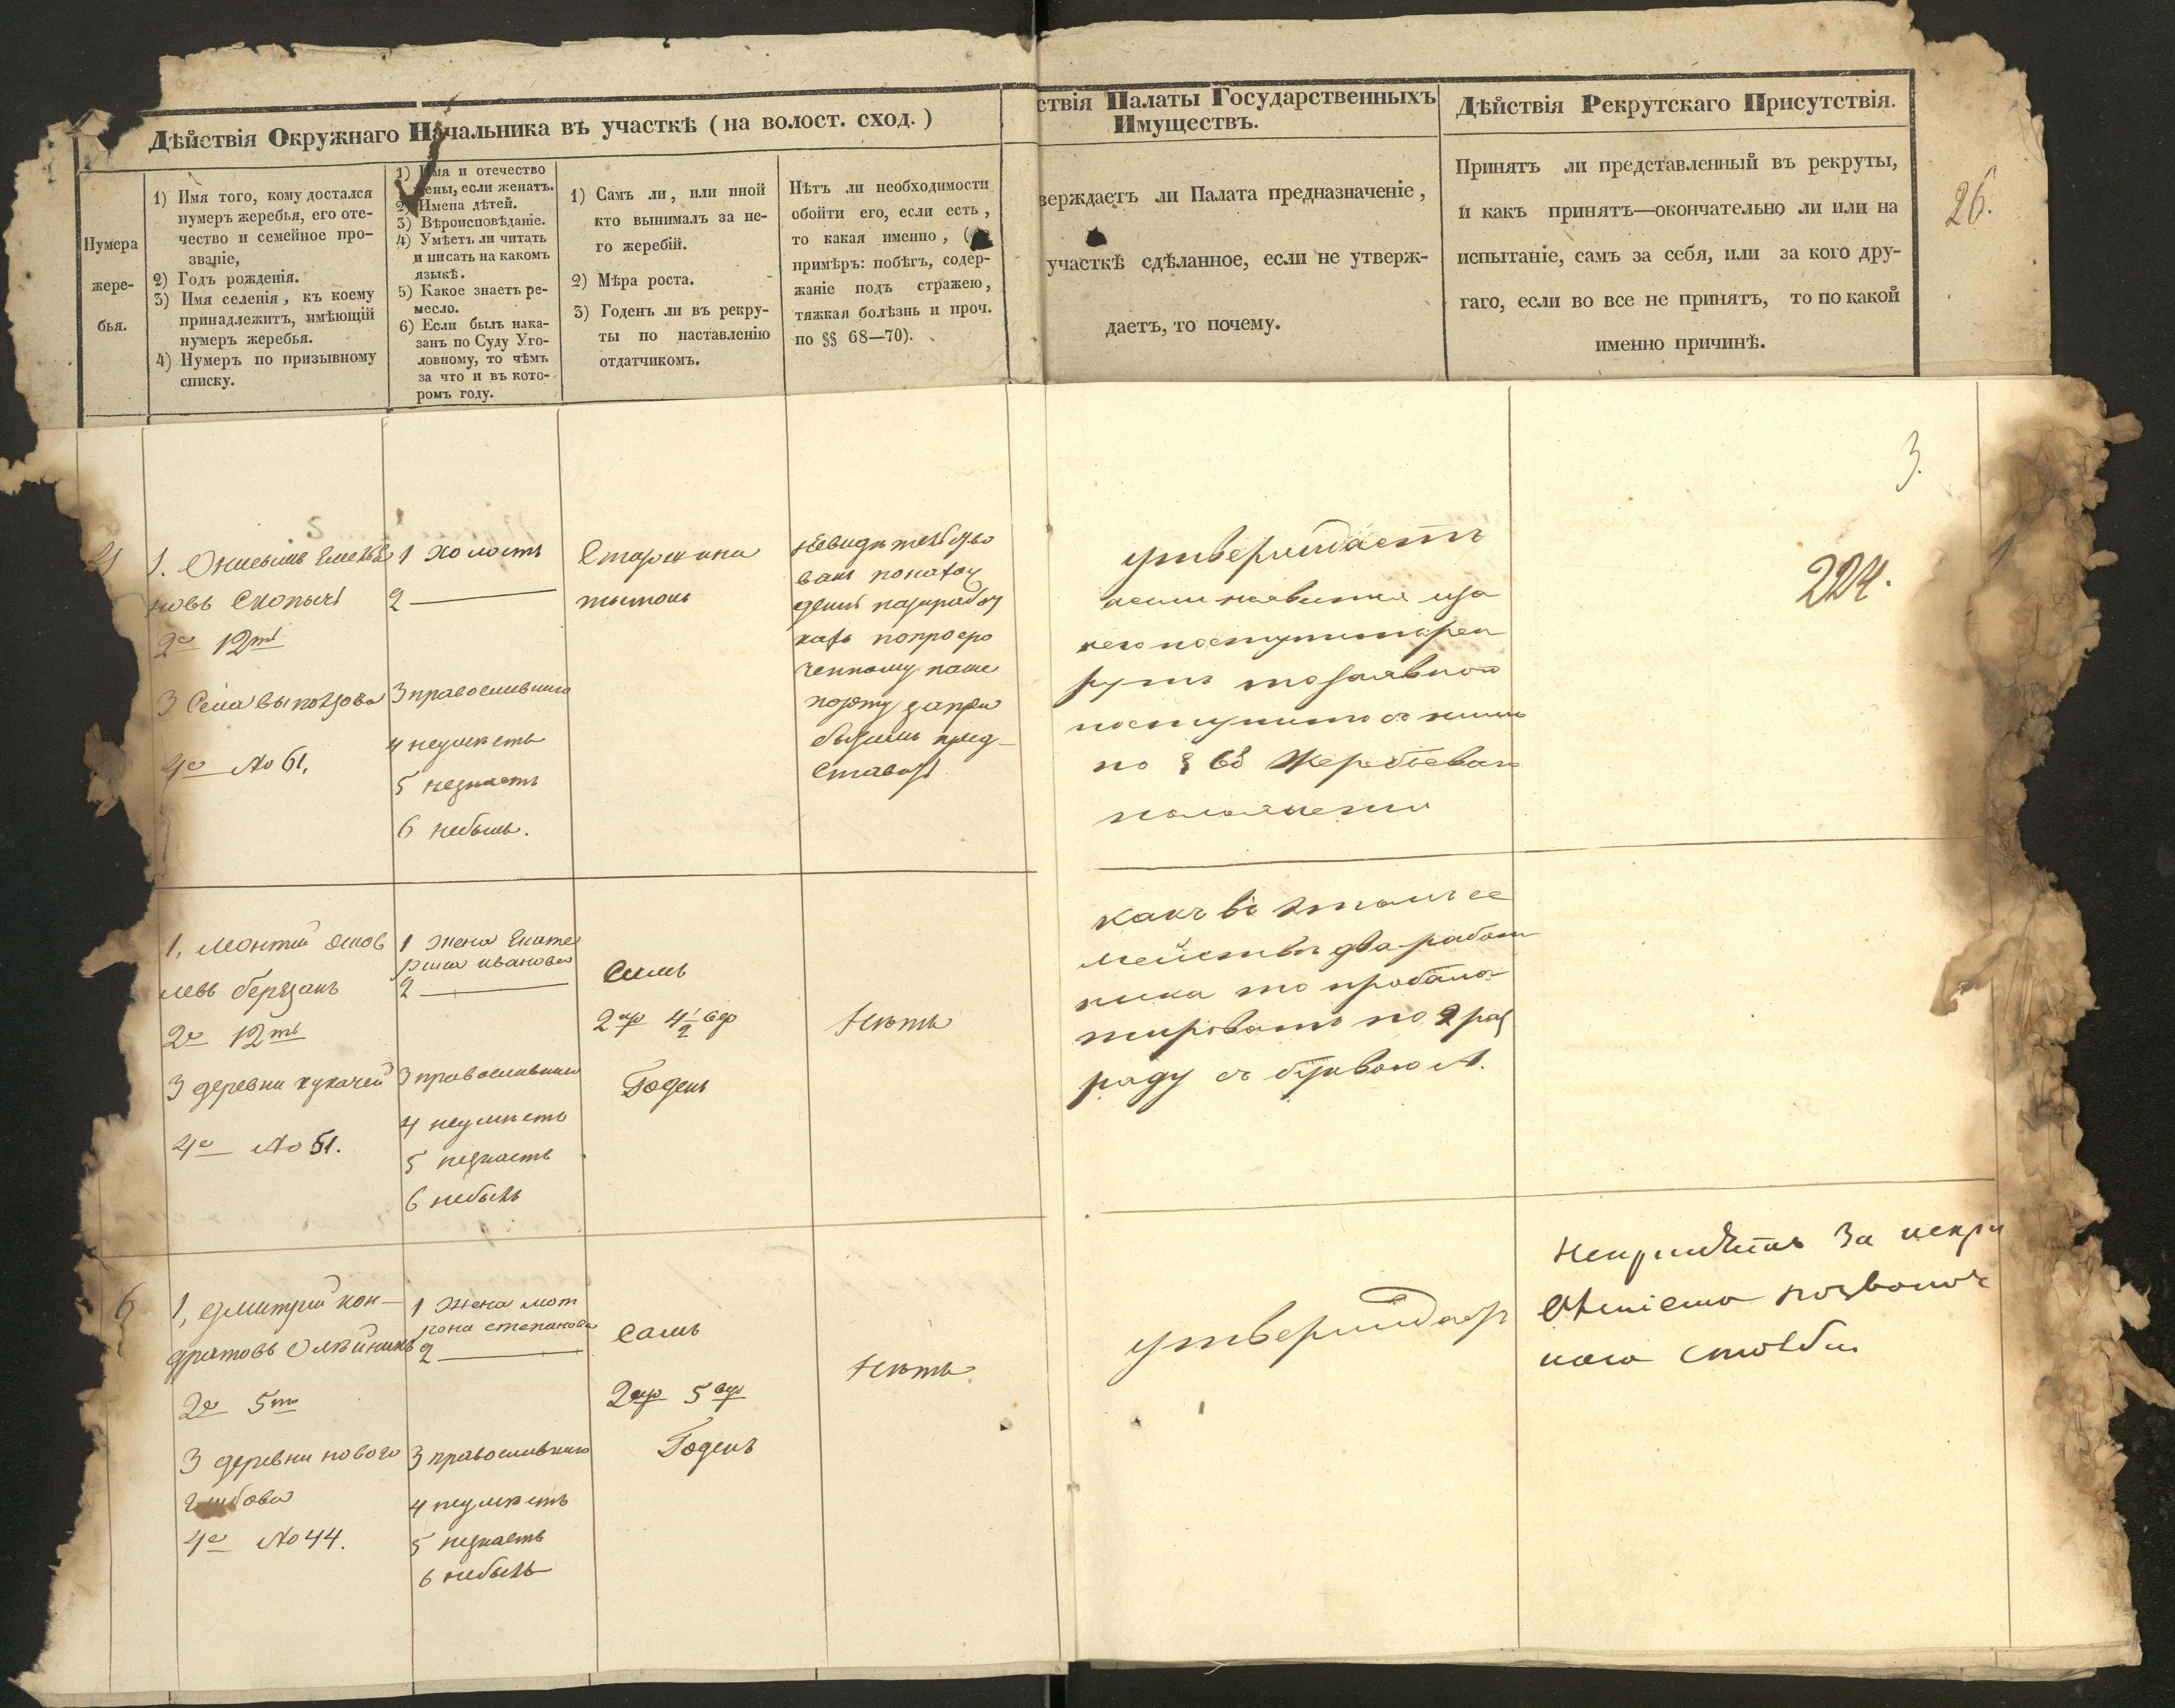 Дѣйствія Окружнаго Начальника въ участкѣ ( на волост. сход. )
ствія Палаты Государственныхъ
Имуществъ.
Дѣйствія Рекрутскаго Присутствія.
26.
Нумера
жере-
бья.
1) Имя того, кому достался
нумеръ жеребья, его оте-
чество и семейное про-
званіе,
2) Годъ рожденія.
3) Имя селенія, къ коему
принадлежитъ, имѣющій
нумеръ жеребья.
4) Нумеръ по призывному
списку.
1) Имя и отечество
жены, если женатъ.
2) Имена дѣтей.
3) Вѣроисповѣданіе.
4) Умѣетъ ли читать
и писать на какомъ
языкѣ.
5) Какое знаетъ ре-
месло.
6) Если былъ нака-
занъ по Суду Уго-
ловному, то чѣмъ
за что и въ кото-
ромъ году.
1) Самъ ли, или иной
кто вынималъ за не-
го жеребій.
2) Мѣра роста.
3) Годенъ ли въ рекру-
ты по наставленію
отдатчикомъ.
Нѣтъ ли необходимости
обойти его, если есть,
то какая именно,
примѣръ: побѣгъ, содер-
жаніе подъ стражею,
тяжкая болѣзнь и проч.
по §§ 68—70).
верждаетъ ли Палата предназначеніе,
участкѣ сдѣланное, если не утверж-
даетъ, то почему.
Принятъ ли представленный въ рекруты,
и какъ принятъ—окончательно ли или на
испытаніе, самъ за себя, или за кого дру-
гаго, если во все не принятъ, то по какой
именно причинѣ.
3.
224.
4
1. Онисимъ Емелья
новъ
2е 12ть
3 Села
4е No 61.
1 холостъ
2 —
3 православнаго
4 неумѣетъ
5 незнаетъ
6 небылъ.
Старшина
невидѣтельство
ванъ понахож
деннію назаработ
кахъ попросро
ченному паш
порту
пред-
ставлѣ
утверждаетъ
если неявится иза
него поступитъ рек
рутъ то заявкою
поступить съ нимъ
по § 68 Жеребьеваго
положенія
1, Леонтій
левъ берзанъ
2е 12ть
3 деревни кукачей
4е No 51.
1 жена Екате
рина иванова
2 —
3 православнаго
4 неумѣетъ
5 незнаетъ
6 небылъ
Самъ
2 ар 4½ вер
Годенъ
Нѣтъ
какъ въ этомъ се
мействѣ два работ
ника то
по 2 раз
ряду съ буквою А.
6
1, Дмитрий кон-
дратовъ Олѣйникъ
2е 5ть
3 деревни нового
глыбова
4е No 44.
1 Жена мот
рона степанова
2 —
3 православнаго
4 неумѣетъ
5 незнаетъ
6 небылъ
Самъ
2 ар 5 вер
Годенъ
Нѣтъ
утверждает
Непринятъ За искри
вленіемъ позвоноч
наго столба